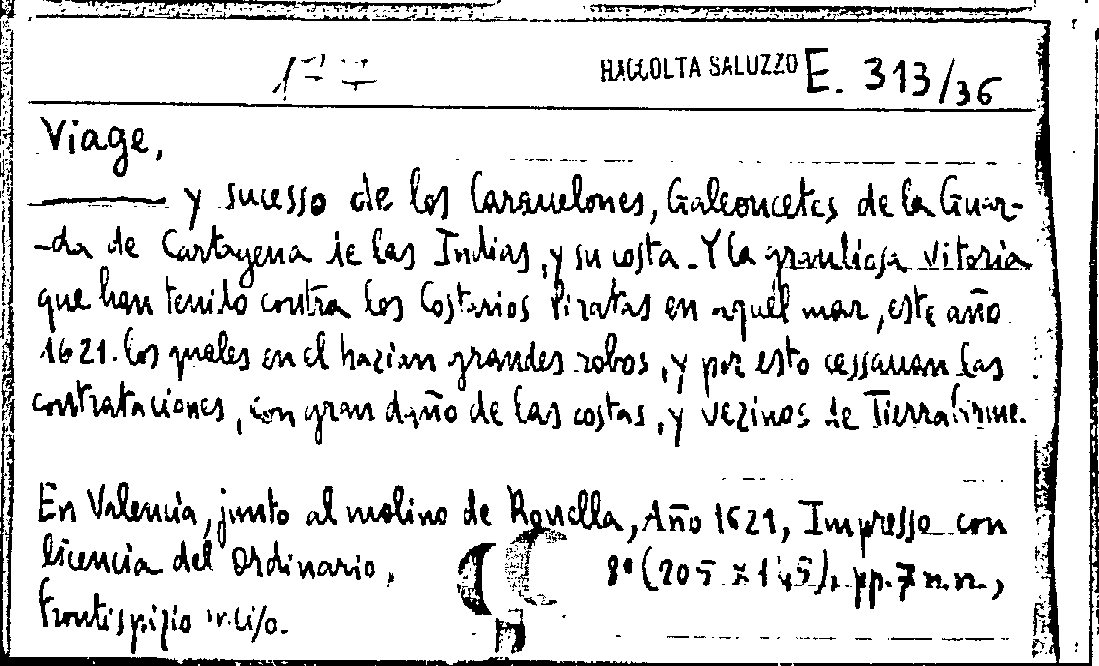 RACCOLTA SALUZZO E. 313/36
Viage,
y sucesso de los Carauelones, Galeoncetes de la Guar-
-da de Cartagena de las Indias, y su costa. Y la grandiosa vitoria
que han tenido contra los Costarios Piratas en aquel mar, este año
1621. los quales en el hazian grandes robos, y por esto cessauan las
contrataciones, con gran daño de las costas, y vezinos de Tierrafirme.
En Valencia, junto al molino de Rouella, Año 1621, Impresso con
licencia del Ordinario,
8° (205 x 145), pp. 7 n.n.,
Frontispizio